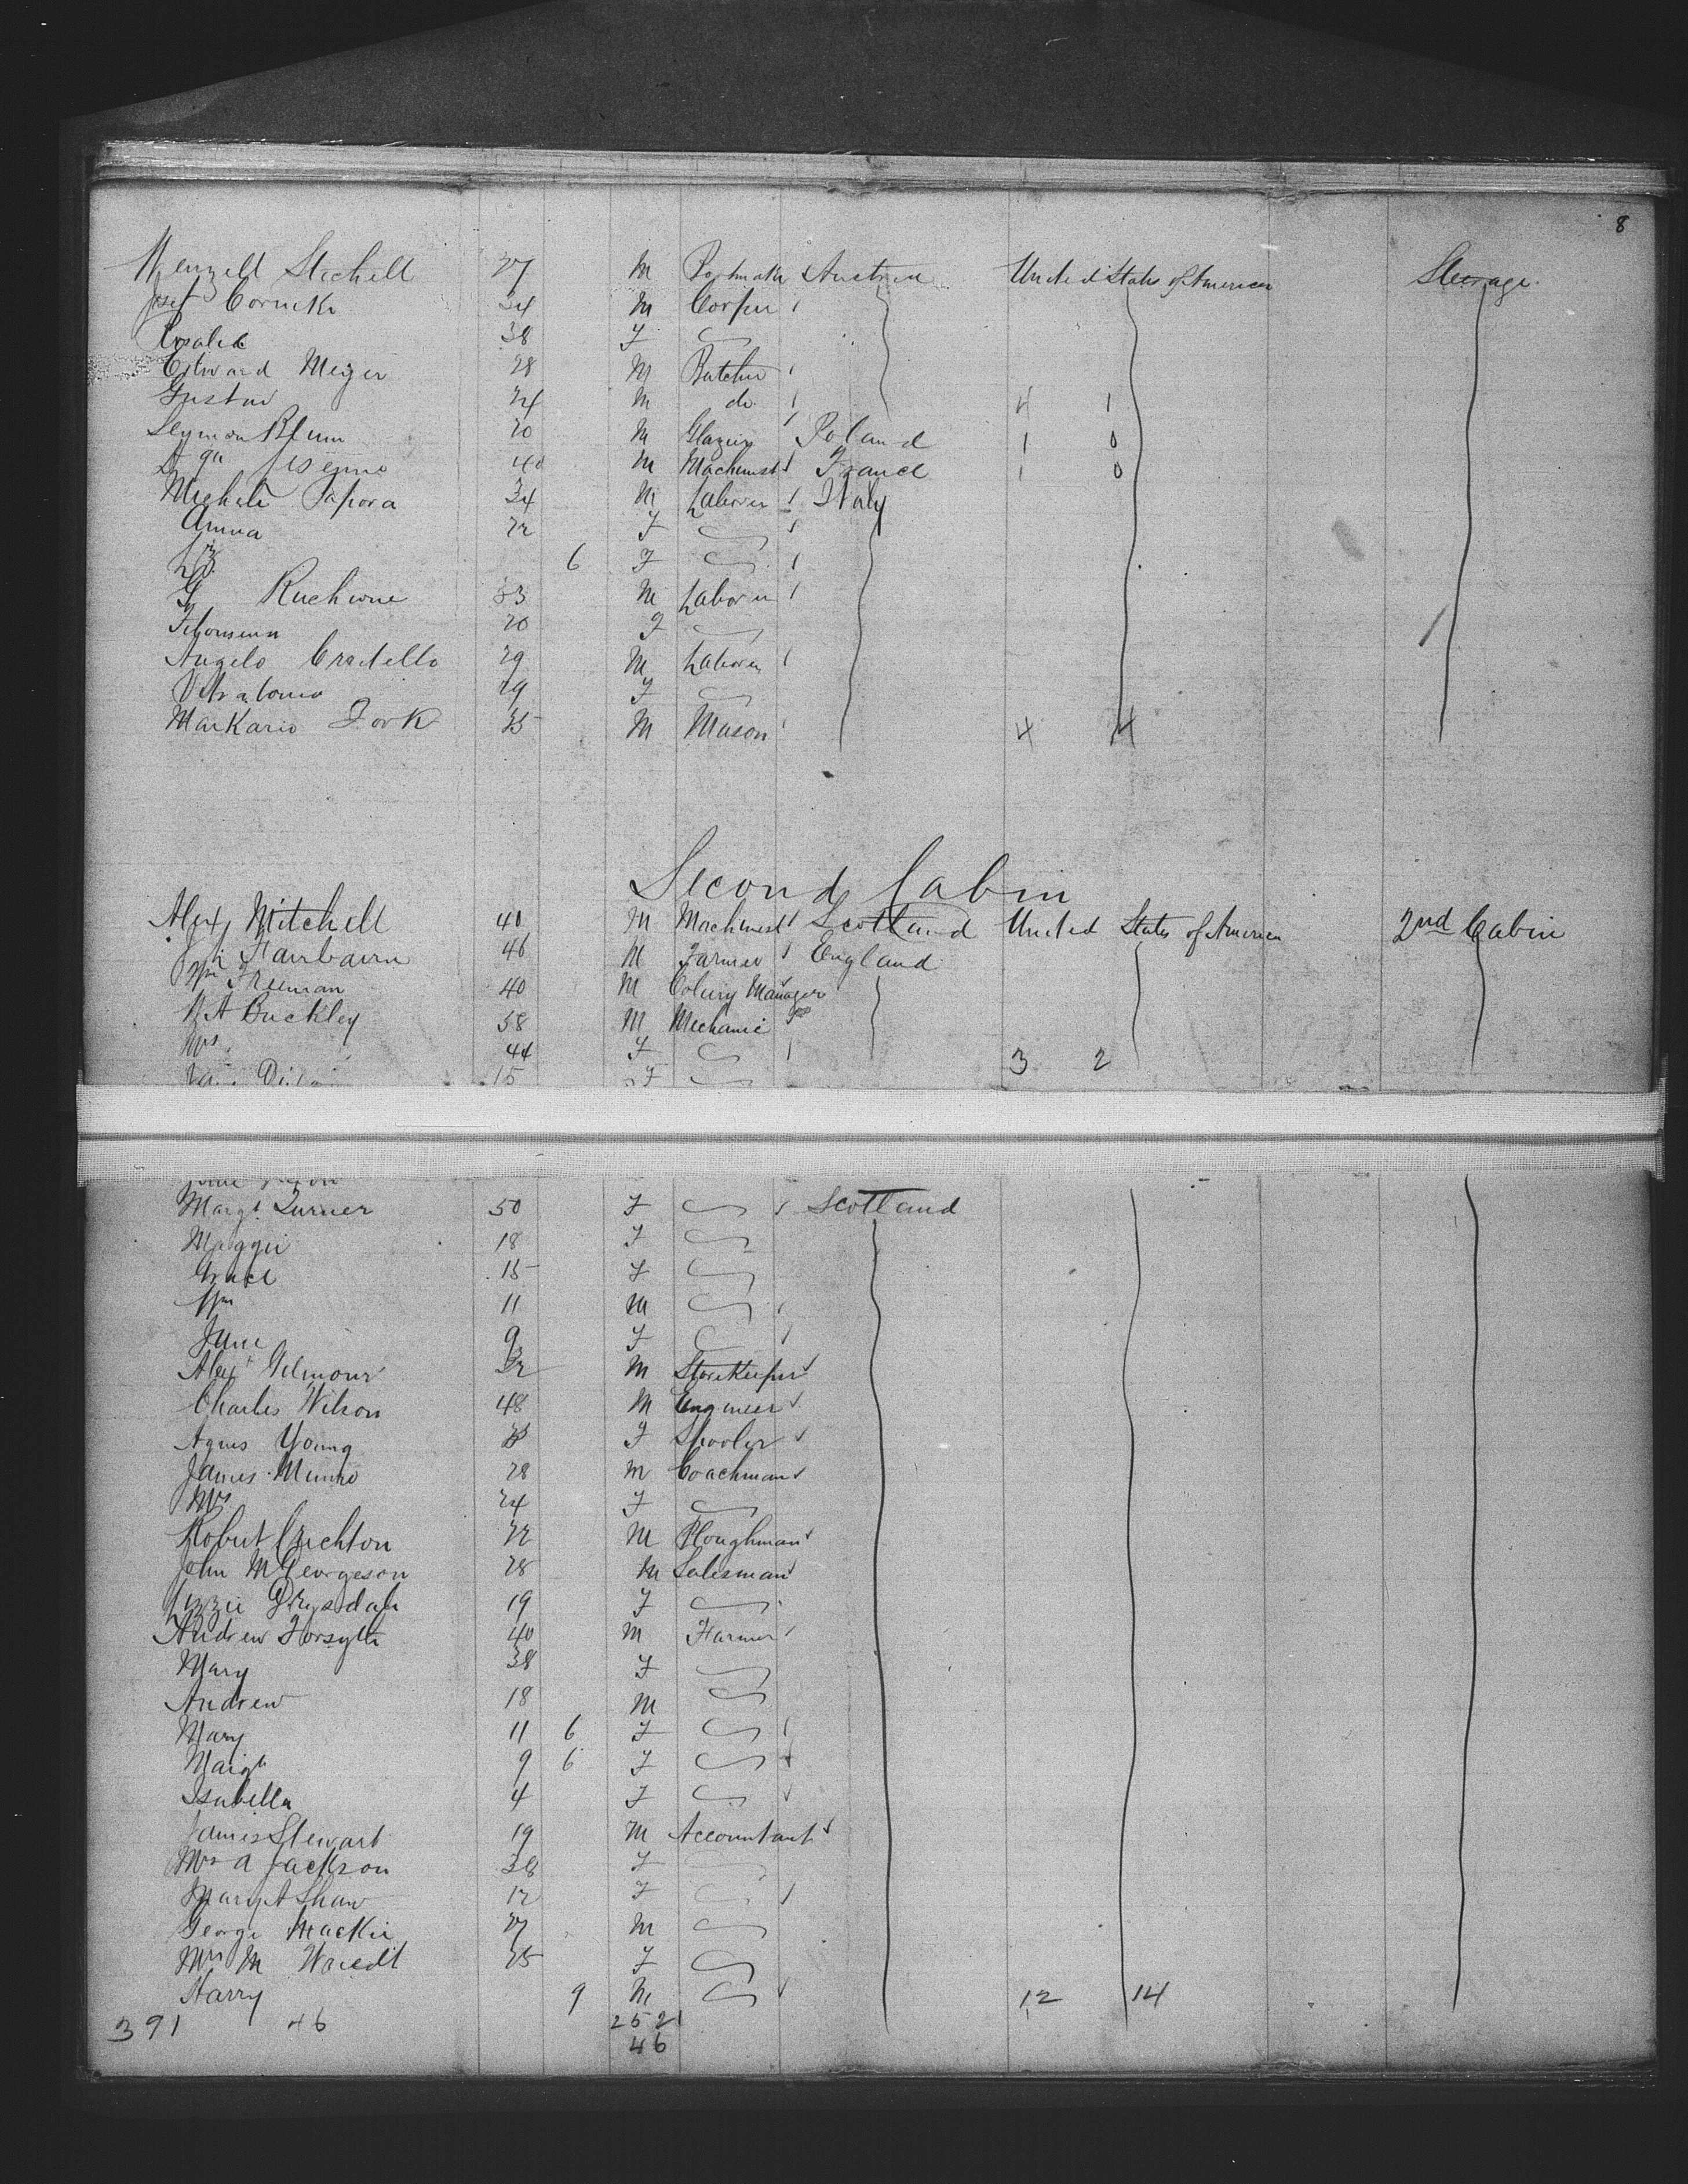 8
Wenzell Stichell 27 M Austria United States of America Steerage
Josef Cornicka 34 M Carpen
Rosalia 38 F
Edward Meyer 28 M Butcher
Gustav 24 M do 4 1
Blum 20 M Glazier Poland 1 0
40 M Machinist France 1 0
Michele Papora 34 M Laborer Italy
Anna 22 F
6 F
G Ruchione 33 M Laborer
20 F
Angelo Cradello 29 M Laborer
29 F
Markario Fork 35 M Mason 4 4
Second Cabin
Alex Mitchell 40 M Machinist Scotland United States of America 2nd Cabin
Jn Fairbairn 46 M Farmer England
Wm Freeman 40 M Coliery Manager
Buckley 58 M Mechanic
Mrs 44 F 3 2
15 F
Margt Turner 50 F Scotland
Maggie 18 F
Grace 15 F
Wm 11 M
Jane 9 F
Alex Gilmour 32 M Storekeeper
Charles Wilson 48 M Engineer
Agnes Young F Spooler
James Munro 28 M Coachman
Mrs 24 F
Robert Crichton 22 M Ploughman
John McGeorgeson 28 M Salesman
Lizzie Drysdale 19 F
Andrew Forsyth 40 M Farmer
Mary 38 F
Andrew 18 M
Mary 11 6 F
Margt 9 6 F
Isabella 4 F
James Stewart 19 M Accountant
Mrs A Jackson 38 F
Margt Shaw 12 F
George Mackie 27 M
Mrs M 25 F
Harry 9 M 12 14
391 46 25 21
46